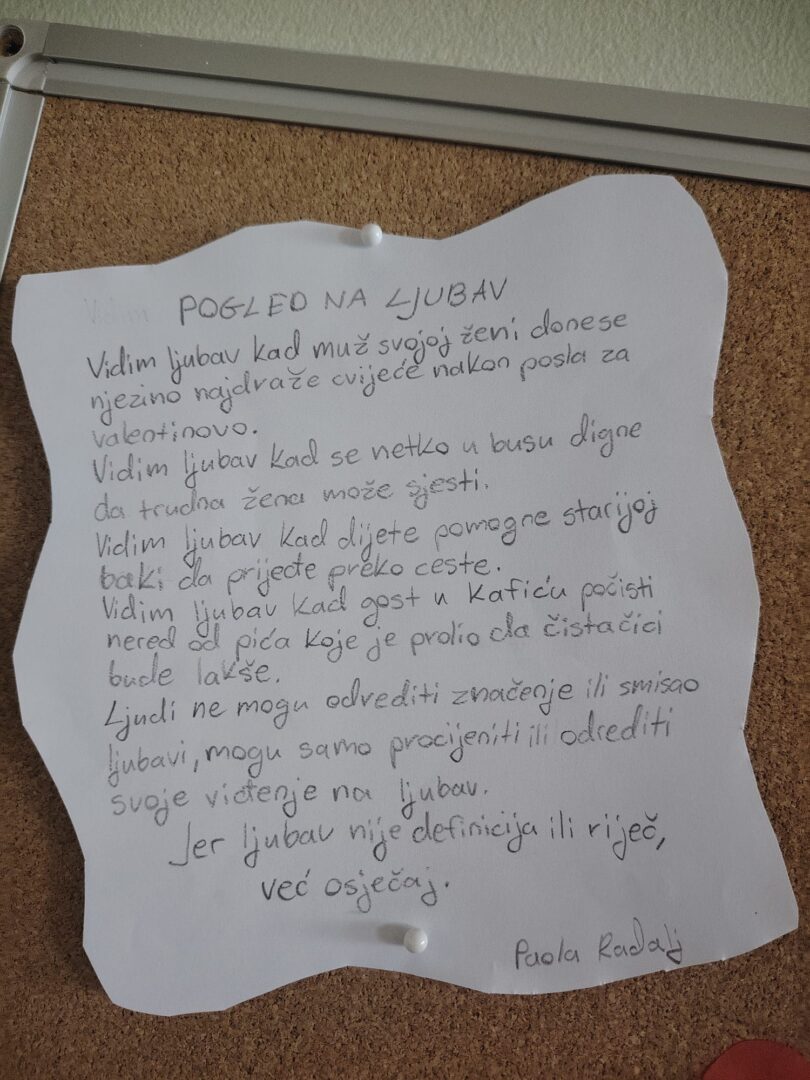 POGLED NA LJUBAV
Vidim ljubav kad muž svojoj ženi donese
njezino najdraže cvijeće nakon posla za
valentinovo.
Vidim ljubav kad se netko u busu digne
da trudna žena može sjesti.
Vidim ljubav kad dijete pomogne starijoj
baki da prijeđe preko ceste.
Vidim ljubav kad gost u kafiću počisti
nered od pića koje je prolio da čistačici
bude lakše.
Ljudi ne mogu odrediti značenje ili smisao
ljubavi, mogu samo procijeniti ili odrediti
svoje viđenje na ljubav.
Jer ljubav nije definicija ili riječ,
već osječaj.
Paola Radalj